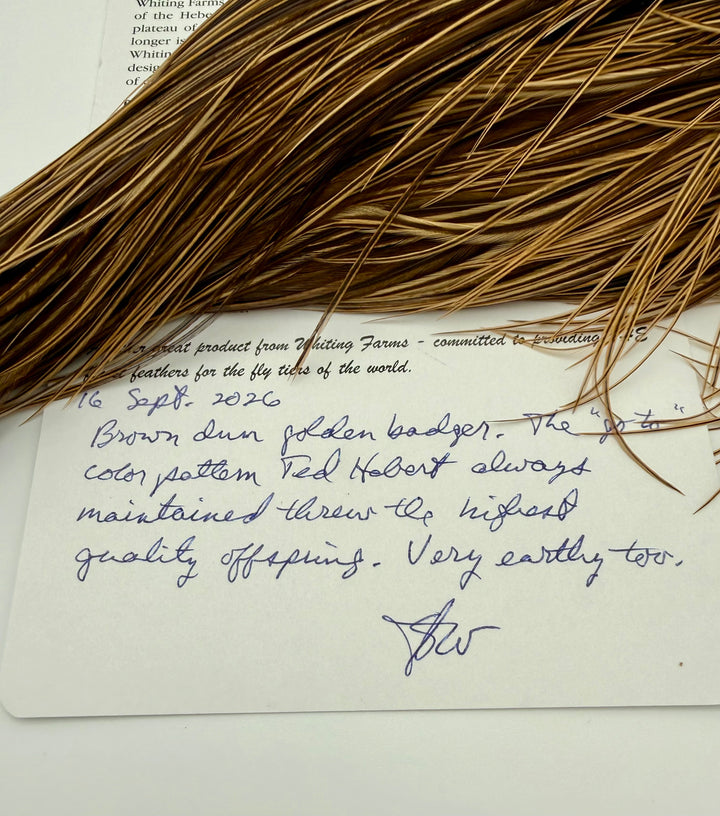 Whiting Farms
of the Hebe
plateau of
longer is
Whitin
desig
of
great product from Whiting Farms - committed to providing
feathers for the fly tiers of the world.
16 Sept. 2026
Brown dun golden badger. The "go to"
color pattern Ted Hebert always
maintained threw the highest
quality offspring. Very earthy too.